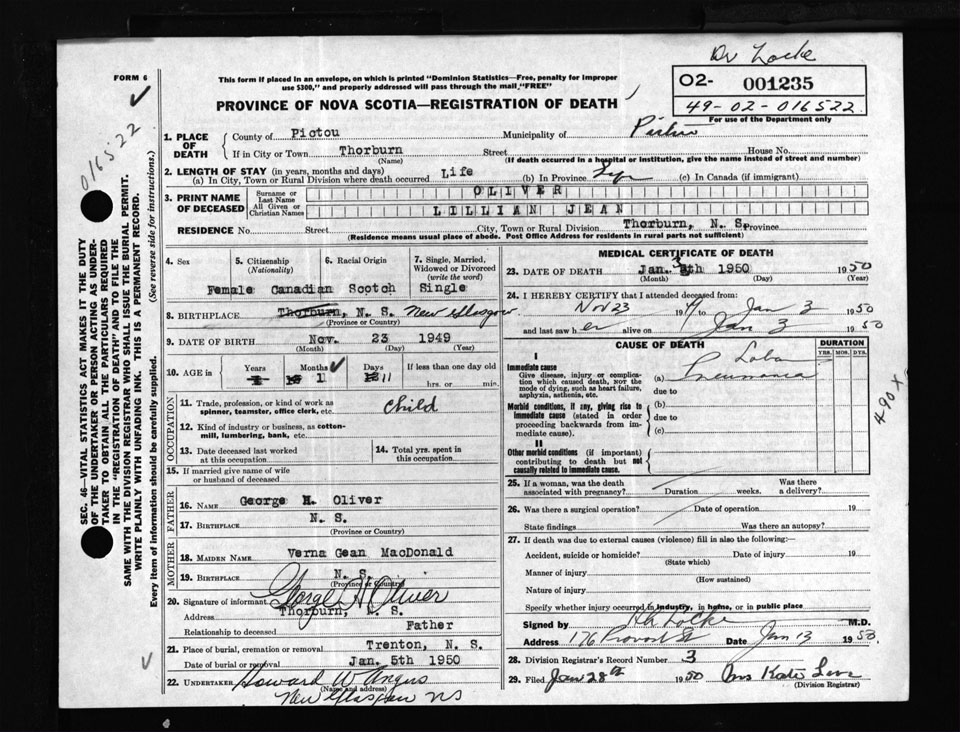 Dr Locke
FORM 6
This form if placed in an envelope, on which is printed "Dominion Statistics—Free, penalty for improper
use $300," and properly addressed will pass through the mail "FREE"
O2- 001235
49-02-016522
For use of the Department only
PROVINCE OF NOVA SCOTIA—REGISTRATION OF DEATH
016522
SEC. 46—VITAL STATISTICS ACT MAKES IT THE DUTY
OF THE UNDERTAKER OR PERSON ACTING AS UNDER-
TAKER TO OBTAIN ALL THE PARTICULARS REQUIRED
IN THE "REGISTRATION OF DEATH" AND TO FILE THE
SAME WITH THE DIVISION REGISTRAR WHO SHALL ISSUE THE BURIAL PERMIT.
WRITE PLAINLY WITH UNFADING INK. THIS IS A PERMANENT RECORD.
Every item of information should be carefully supplied. (See reverse side for instructions.)
1. PLACE OF DEATH
County of Pictou Municipality of Pictou
If in City or Town Thorburn Street House No.
(Name) (If death occurred in a hospital or institution, give the name instead of street and number)
2. LENGTH OF STAY (in years, months and days)
(a) In City, Town or Rural Division where death occurred Life (b) In Province Life (c) In Canada (if immigrant)
3. PRINT NAME OF DECEASED
Surname or Last Name OLIVER
All Given or Christian Names LILLIAN JEAN
RESIDENCE No. Street City, Town or Rural Division Thorburn, N. S. Province
(Residence means usual place of abode. Post Office Address for residents in rural parts not sufficient)
4. Sex 5. Citizenship (Nationality) 6. Racial Origin 7. Single, Married, Widowed or Divorced (write the word)
Female Canadian Scotch Single
8. BIRTHPLACE Thorburn, N. S. New Glasgow
(Province or Country)
9. DATE OF BIRTH Nov. 23 1949
(Month) (Day) (Year)
10. AGE in Years Months Days If less than one day old
1 11 hrs. or min.
OCCUPATION
11. Trade, profession, or kind of work as spinner, teamster, office clerk, etc. child
12. Kind of industry or business, as cotton-mill, lumbering, bank, etc.
13. Date deceased last worked at this occupation
14. Total yrs. spent in this occupation
15. If married give name of wife or husband of deceased
FATHER
16. Name George H. Oliver
17. Birthplace N. S.
(Province or Country)
MOTHER
18. Maiden Name Verna Gean MacDonald
19. Birthplace N. S.
(Province or Country)
20. Signature of informant George H Oliver
Address Thorburn, N. S.
Relationship to deceased Father
21. Place of burial, cremation or removal Trenton, N. S.
Date of burial or removal Jan. 5th 1950
22. Undertaker Howard W Angus
(Name and address)
New Glasgow NS
MEDICAL CERTIFICATE OF DEATH
23. DATE OF DEATH Jan. 3 th 1950 1950
(Month) (Day) (Year)
24. I HEREBY CERTIFY that I attended deceased from:
Nov 23 19 Jan 3 1950
and last saw h er alive on Jan 3 1950
CAUSE OF DEATH DURATION
YRS. MOS. DYS.
I
Immediate cause
Give disease, injury or complication which caused death, NOT the mode of dying, such as heart failure, asphyxia, asthenia, etc.
(a) Lobar Pneumonia
due to
Morbid conditions, if any, giving rise to immediate cause (stated in order proceeding backwards from immediate cause).
(b)
due to
(c)
II
Other morbid conditions (if important) contributing to death but not causally related to immediate cause.
490 X
25. If a woman, was the death associated with pregnancy? Duration weeks. Was there a delivery?
26. Was there a surgical operation? Date of operation 19
State findings Was there an autopsy?
27. If death was due to external causes (violence) fill in also the following:—
Accident, suicide or homicide? Date of injury 19
(State which)
Manner of injury
(How sustained)
Nature of injury
Specify whether injury occurred in industry, in home, or in public place
Signed by Locke M.D.
Address 176 Provost St Date Jan 13 1950
28. Division Registrar's Record Number 3
29. Filed Jan 28th 1950 Mrs Kate
(Division Registrar)